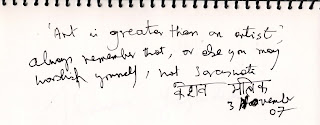 'Art is greater than an artist,'
always remember that, or else you may
worship yourself, not Saraswati
केशव मलिक
3 November
07